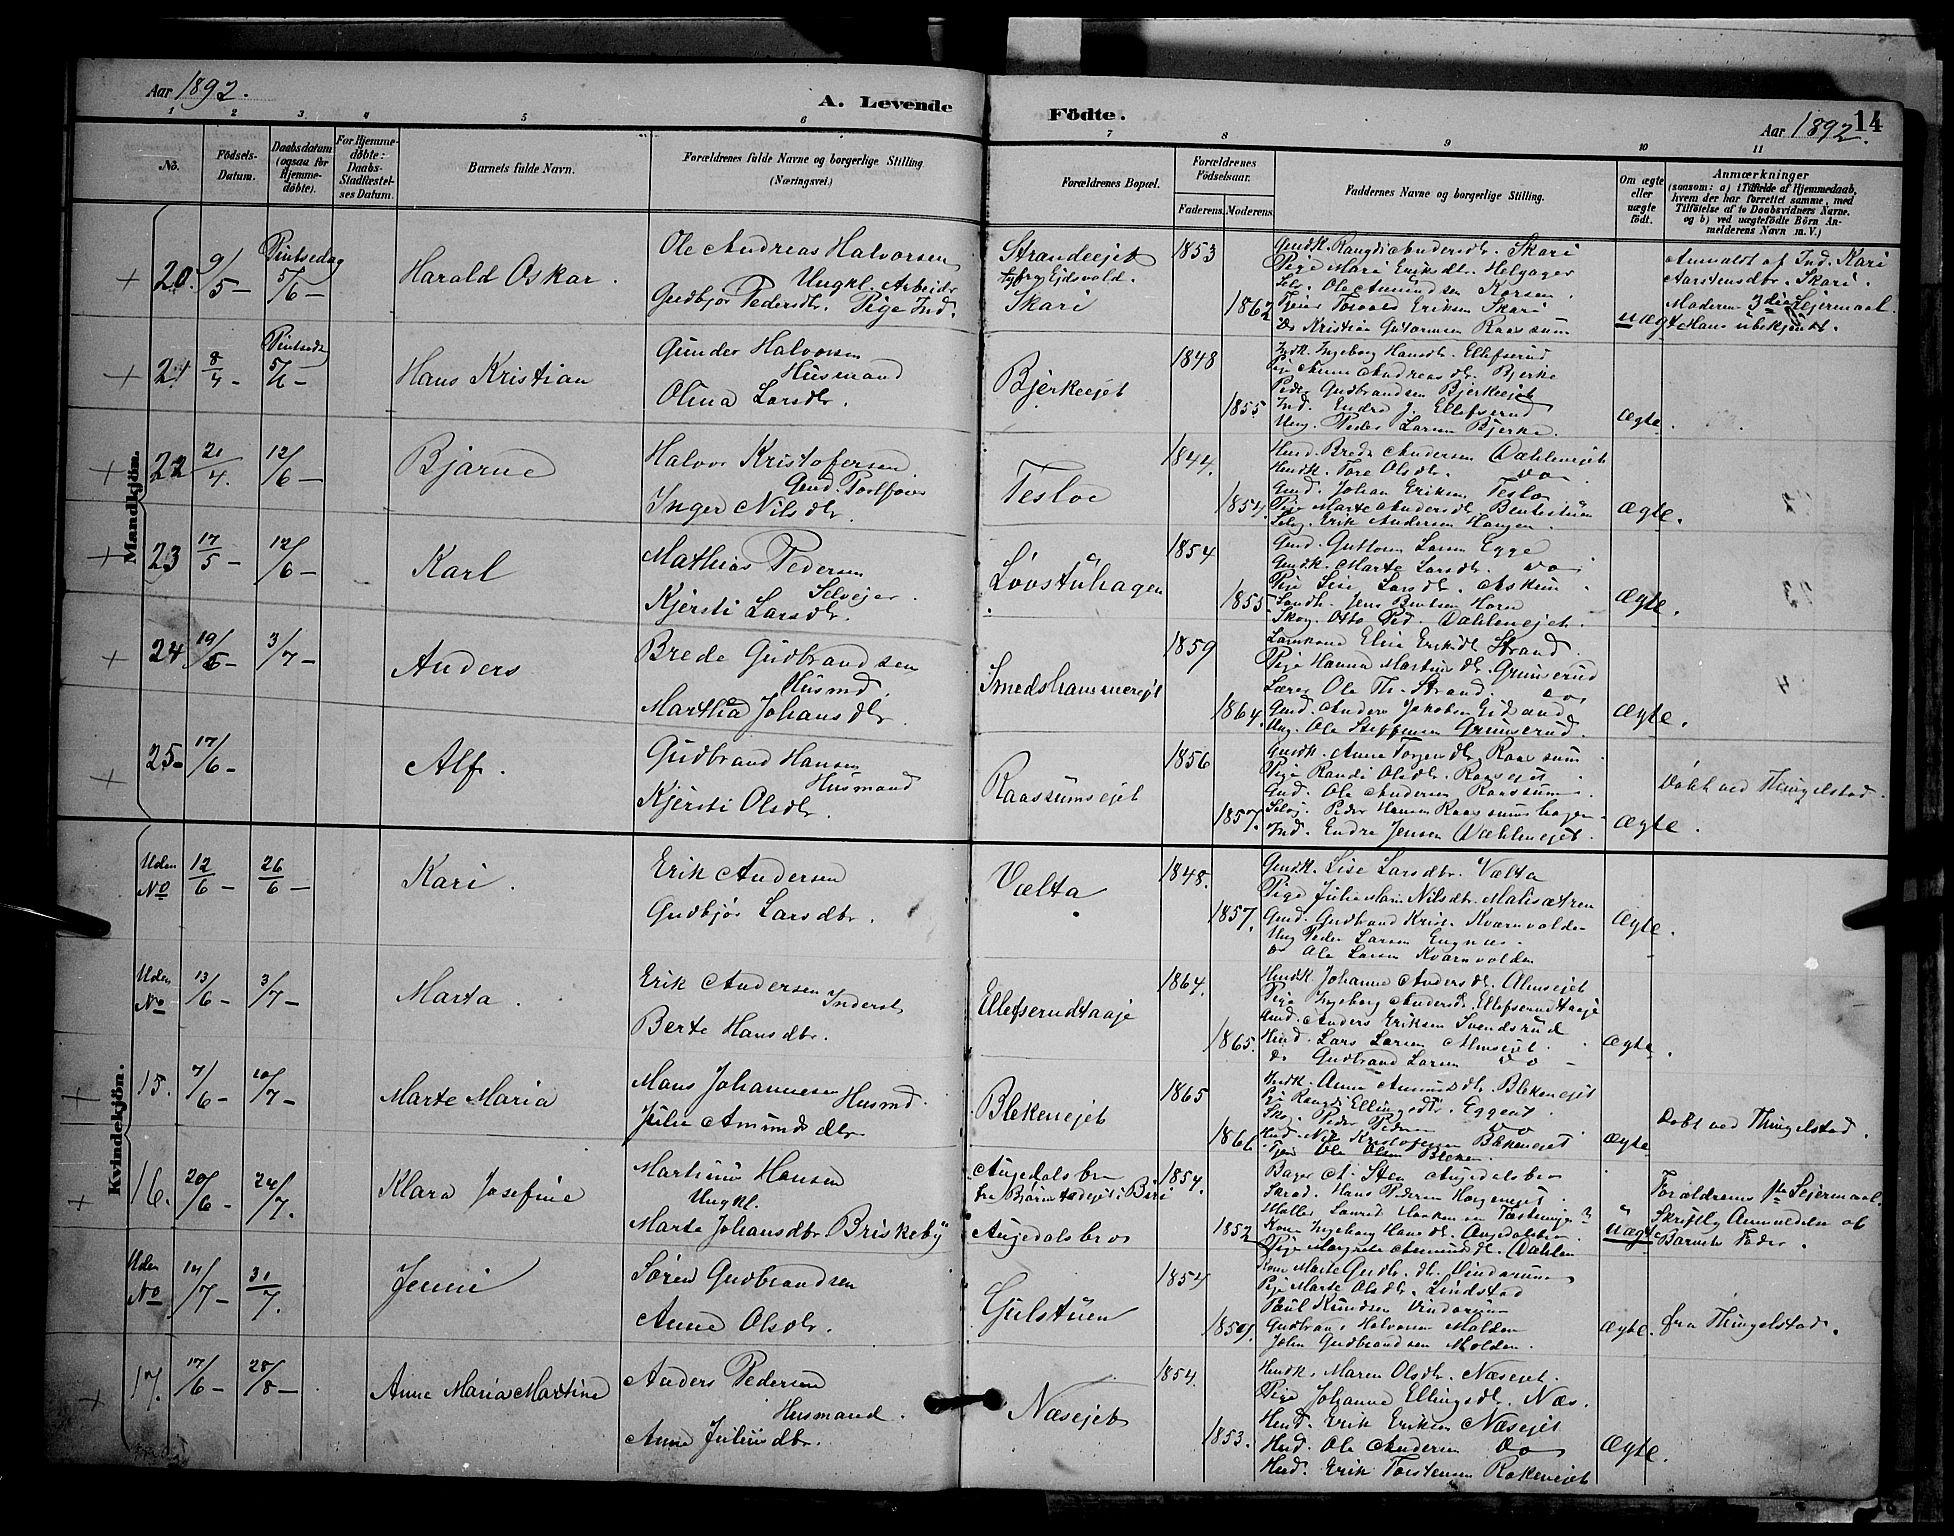 Aar 1892.
A. Levende Födte.
Aar 1892. 14
1 2 3 4 5 6 7 8 9 10 11
No.
Födsels-Datum.
Daabsdatum (ogsaa for Hjemmedöbte).
For Hjemmedöbte: Daabs-Stadfæstelses Datum.
Barnets fulde Navn.
Forældrenes fulde Navne og borgerlige Stilling (Næringsvei.)
Forældrenes Bopæl.
Forældrenes Födselsaar.
Faderens. Moderens.
Faddernes Navne og borgerlige Stilling.
Om ægte eller uægte födt.
Anmærkninger
(saasom: a) i Tilfælde af Hjemmedaab,
hvem der har forrettet samme, med
Tilföielse af to Daabsvidners Navne,
og b) ved uægtefödte Börn Anmelderens Navn m. V.)
Mandkjön.
20. 9/5 - Pintsedag 5/6 - Harald Oskar.
Ole Andreas Halvorsen
Ungkl. Arbeider
Gudbjör Pedersdtr. Pige Ind.
Strandeejet
Eidsvold.
Skari
1853
1862
Gmdk. Rangdi Andersdtr. Skari
Pige Mari Eriksdtr. Helgager
Selv. Ole Amundsen Korsen.
Tjener Torvald Eriksen Skari
Do Kristian Gutormsen Raassum
uægte
Anmeldt af Ind. Kari
Aarstensdtr. Skari.
Moderens 3die Leiermaal.
Hans ubekjendt.
21 8/4 - 5/6 - Hans Kristian
Gunder Halvorsen
Husmand
Olina Larsdtr.
Bjerkeejet
1848
1855
Indk. Ingeborg Hansdtr. Ellefserud
Pige Anne Andreasdtr. Bjerke
Peder Gudbrandsen Bjerkeejet
Ind. Endre J. Ellefserud
Ung. Peder Larsen Bjerke.
Ægte.
22 21/4. 12/6 - Bjarne
Halvor Kristofersen
Gmd. Postfører
Inger Nilsdtr.
Tesloe
1844.
1854.
Hmd. Brede Andersen Væhlensejet
Hmdk. Tore Olsdtr. do
Gmd. Johan Eriksen Teslo
Pige Marte Andersdtr. Bentestuen
Selvg. Erik Andersen Haugen.
Ægte.
23 17/5 - 12/6 - Karl
Mathias Pedersen
Selvejer.
Kjersti Larsdtr.
Lövstuhagen
1854
1855
Gmd. Guttorm Larsen Egge
Gmdk. Marte Larsdtr. do
Pige Lise Larsdtr. Askim
Landh. Jens Bentsen Horn
Skog. Otto Ped. Væhlensejet.
Ægte.
24 19/5 - 3/7 - Anders
Brede Gudbrandsen
Husmd.
Martha Johansdtr.
Smedshammerejet
1859
1864.
Lærekone Elise Eriksdtr. Strand.
Pige Hanna Martinsdtr. Grimserud
Lærer Ole Th. Strand. do
Gmd. Anders Jakobsen
Ung. Ole Steffensen Grimserud.
Ægte.
25 17/6 - Alf.
Gudbrand Hansen
Husmand
Kjersti Olsdtr.
Raassumsejet
1856
1857.
Gmdk. Anne Torgersdtr. Raassum
Pige Randi Olsdtr. Raasejet
Gmd. Ole Andersen Raassum
Selvg. Peder Hansen Raassumshagen
Ind. Endre Jensen Væhlensejet.
Ægte.
Döbt ved Thingelstad.
Kvindekjön.
Uden No 12/6 - 26/6 - Kari.
Erik Andersen
Gudbjör Larsdtr.
Vælta
1848.
1857.
Gmdk. Lise Larsdtr. Vælta
Pige Julie Marie Nilsdtr. Malisætren
Gmd. Gudbrand Krist. Kværnvolden
Ung Peder Larsen Engnæs.
do Ole Larsen Kværnvolden
Ægte.
Uden No 13/6 - 3/7 - Marta.
Erik Andersen Inderst
Berte Hansdtr.
Ellefserudtaaje
1864.
1865.
Hmdk. Johanne Andersdtr. Almsejet
Pige Ingeborg Andersd. Ellefserudtaaje
Gmd. Anders Eriksen Svendsrud
Hmd. Lars Larsen Almsejet.
do Gudbrand Larsen do
Ægte.
15. 7/6 - 10/7 - Marte Maria
Mons Johannesen Husmd.
Julie Amundsdtr.
Blekenejet
1865
1866
Indk. Anne Amundsdtr. Blekenejet
Pige Rangdi Ellingsdtr. Eggeejet.
Skog. Peder Pedersen do
Hmd. Nils Kristofersen Blekenejet
Tjen Ole Olsen Bleken.
Ægte
Döbt ved Thingelstad.
16. 20/6 - 24/7. Klara Josefine
Martinus Hansen
Ungkl.
Marte Johansdtr Briskeby
Augedalsbro
fra Björnstadejet i Biri
Augedalsbro
1854.
1852
Bager A. Sten Augedalsbro
Skræd. Hans Pedersen Horgenejet.
Möller Laurids Haakensen
Kone Ingeborg Hansdtr. Augedalsbro.
Pige Margrete Amundsdtr. Væhlen
uægte
Forældrenes 1ste Leiermaal.
Skriftlig Anmeldelse af
Barnets Fader.
Uden No 14/7 - 31/7. Jenni
Sören Gudbrandsen
Anne Olsdtr.
Gulstuen
1854
1859.
Kone Marte Gudbr.dtr. Vindorum
Pige Marte Olsdtr. Lindstad
Paul Knudsen Vindorum
Gudbrand Halvorsen Molden
John Gudbrandsen Molden.
Ægte.
fra Thingelstad.
17. 17/6 - 28/8 - Anne Maria Martine
Anders Pedersen
Husmand.
Anne Juliusdtr.
Næsejet
1854.
1853.
Hmdk. Maren Olsdtr. Næsejet.
Pige Johanne Ellingsdtr. Næs.
Hmd. Erik Eriksen Næsejet
Hmd. Ole Andersen do
Hmd. Erik Torstensen Rækenejet
Ægte.